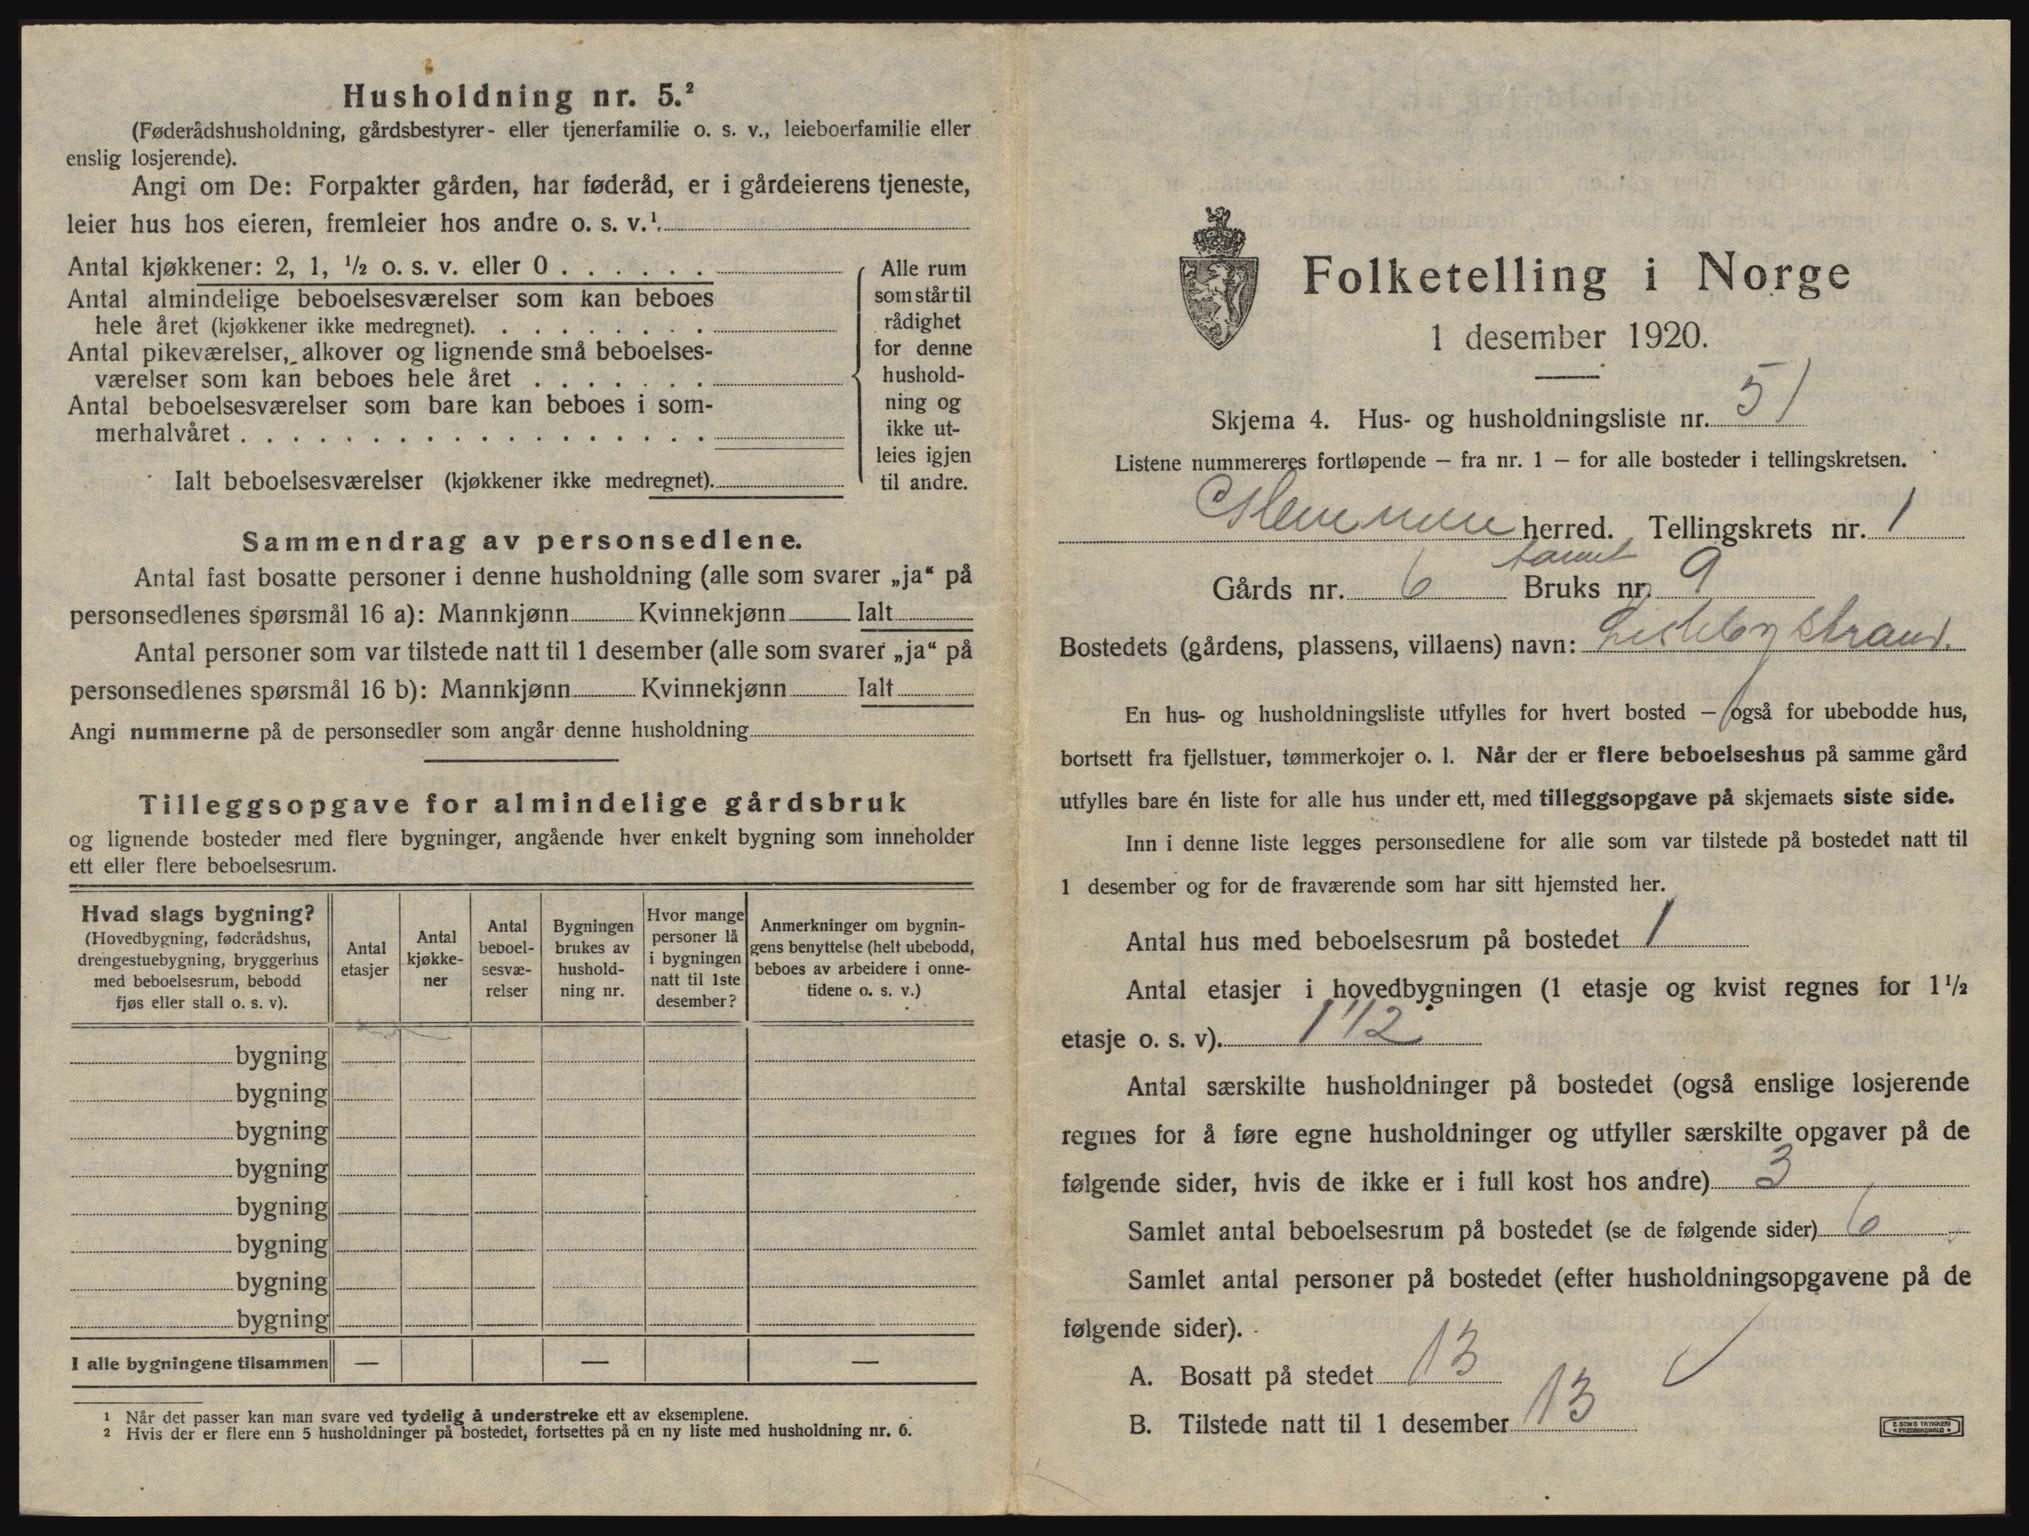 Husholdning nr. 5.²
(Føderådshusholdning, gårdsbestyrer- eller tjenerfamilie o. s. v., leieboerfamilie eller
enslig losjerende).
Angi om De: Forpakter gården, har føderåd, er i gårdeierens tjeneste,
leier hus hos eieren, fremleier hos andre o. s. v.¹.
Antal kjøkkener: 2, 1, ½ o. s. v. eller 0 . . . . . .
Antal almindelige beboelsesværelser som kan beboes
hele året (kjøkkener ikke medregnet). . . . . . . . .
Antal pikeværelser, alkover og lignende små beboelses-
værelser som kan beboes hele året . . . . . . .
Antal beboelsesværelser som bare kan beboes i som-
merhalvåret . . . . . . . . . . . . . . . . . .
Ialt beboelsesværelser (kjøkkener ikke medregnet).
Alle rum
som står til
rådighet
for denne
hushold-
ning og
ikke ut-
leies igjen
til andre.
Sammendrag av personsedlene.
Antal fast bosatte personer i denne husholdning (alle som svarer „ja“ på
personsedlenes spørsmål 16 a): Mannkjønn Kvinnekjønn Ialt
Antal personer som var tilstede natt til 1 desember (alle som svarer „ja“ på
personsedlenes spørsmål 16 b): Mannkjønn Kvinnekjønn Ialt
Angi nummerne på de personsedler som angår denne husholdning
Tilleggsopgave for almindelige gårdsbruk
og lignende bosteder med flere bygninger, angående hver enkelt bygning som inneholder
ett eller flere beboelsesrum.
Hvad slags bygning?
(Hovedbygning, føderådshus,
drengestuebygning, bryggerhus
med beboelsesrum, bebodd
fjøs eller stall o. s. v).
Antal
etasjer
Antal
kjøkke-
ner
Antal
beboel-
sesvæ-
relser
Bygningen
brukes av
hushold-
ning nr.
Hvor mange
personer lå
i bygningen
natt til 1ste
desember?
Anmerkninger om bygnin-
gens benyttelse (helt ubebodd,
beboes av arbeidere i onne-
tidene o. s. v.)
bygning
bygning
bygning
bygning
bygning
bygning
bygning
bygning
I alle bygningene tilsammen — — —
¹ Når det passer kan man svare ved tydelig å understreke ett av eksemplene.
² Hvis der er flere enn 5 husholdninger på bostedet, fortsettes på en ny liste med husholdning nr. 6.
Folketelling i Norge
1 desember 1920.
Skjema 4. Hus- og husholdningsliste nr. 51
Listene nummereres fortløpende – fra nr. 1 – for alle bosteder i tellingskretsen.
Glemmen herred. Tellingskrets nr. 1
Gårds nr. 6 Bruks nr. 9
Bostedets (gårdens, plassens, villaens) navn: Lisleby strand.
En hus- og husholdningsliste utfylles for hvert bosted – også for ubebodde hus,
bortsett fra fjellstuer, tømmerkojer o. l. Når der er flere beboelseshus på samme gård
utfylles bare én liste for alle hus under ett, med tilleggsopgave på skjemaets siste side.
Inn i denne liste legges personsedlene for alle som var tilstede på bostedet natt til
1 desember og for de fraværende som har sitt hjemsted her.
Antal hus med beboelsesrum på bostedet 1
Antal etasjer i hovedbygningen (1 etasje og kvist regnes for 1½
etasje o. s. v). 1 1/2
Antal særskilte husholdninger på bostedet (også enslige losjerende
regnes for å føre egne husholdninger og utfyller særskilte opgaver på de
følgende sider, hvis de ikke er i full kost hos andre) 3
Samlet antal beboelsesrum på bostedet (se de følgende sider) 6
Samlet antal personer på bostedet (efter husholdningsopgavene på de
følgende sider).
A. Bosatt på stedet 13
B. Tilstede natt til 1 desember 13
E. SEM'S TRYKKERI
FREDRIKSHALD